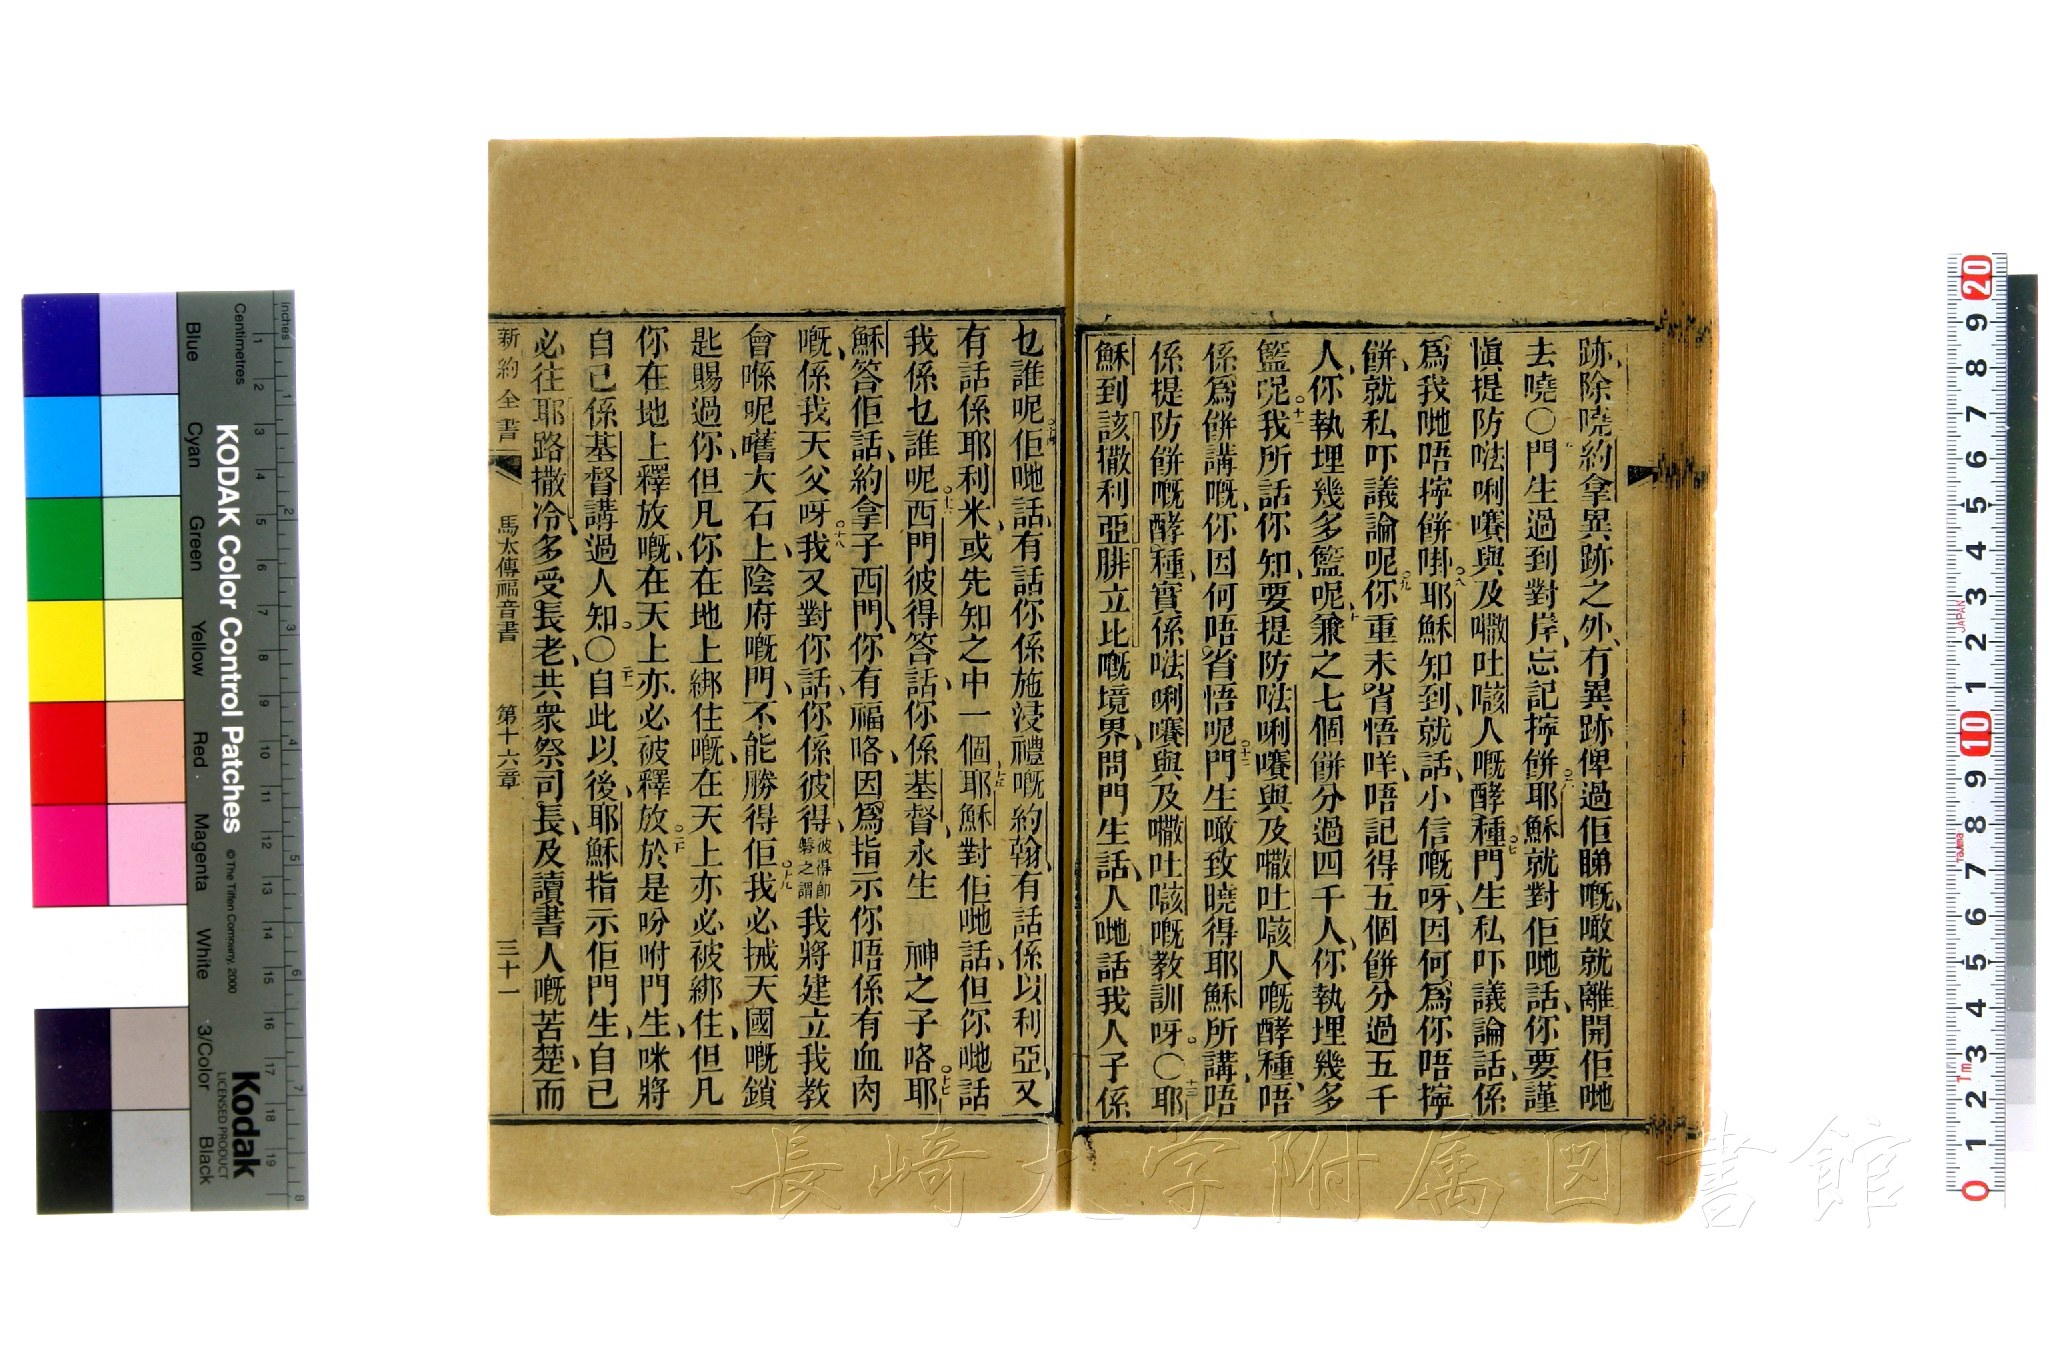 跡、除曉約拿異跡之外、冇異跡俾過佢睇嘅、噉就離開佢哋
去嘵○門生過到對岸、忘記擰餅、耶穌就對佢哋話、你要謹
愼提防𠵽唎㘔與及㘚吐㖡人嘅酵種、門生私吓議論話、係
爲我哋唔擰餅啩、耶穌知到、就話、小信嘅呀、因何爲你唔擰
餅、就私吓議論呢、你重未省悟咩、唔記得五個餅分過五千
人、你執埋幾多籃呢、兼之七個餅分過四千人、你執埋幾多
籃呢、我所話你知、要提防𠵽唎㘔與及㘚吐㖡人嘅酵種、唔
係爲餅講嘅、你因何唔省悟呢、門生噉致曉得耶穌所講、唔
係提防餅嘅酵種、實係𠵽唎㘔與及㘚吐㖡嘅教訓呀。○耶
穌到該撒利亞腓立比嘅境界、問門生話、人哋話我人子係
乜誰呢、佢哋話、有話你係施浸禮嘅約翰、有話係以利亞、又
有話係耶利米、或先知之中一個、耶穌對佢哋話、但你哋話
我係乜誰呢、西門彼得答話、你係基督、永生 神之子咯、耶
穌答佢話、約拿子西門、你有福咯、因爲指示你唔係有血肉
嘅、係我天父呀、我又對你話、你係彼得彼得卽磐之謂我將建立我教
會喺呢嚿大石上、陰府嘅門、不能勝得佢、我必揻天國嘅鎖
匙賜過你、但凡你在地上綁住嘅、在天上亦必被綁住、但凡
你在地上釋放嘅、在天上亦必被釋放、於是吩咐門生、咪將
自己係基督講過人知。○自此以後、耶穌指示佢門生、自己
必往耶路撒冷、多受長老共衆祭司長、及讀書人嘅苦楚、而
新約全書
馬太傳福音書
第十六章
三十一
KODAK Color Control Patches
© The Tiffen Company, 2000
Kodak
LICENSED PRODUCT
Blue Cyan Green Yellow Red Magenta White 3/Color Black
Centimetres
inches
JAPAN
長崎大学附属図書館